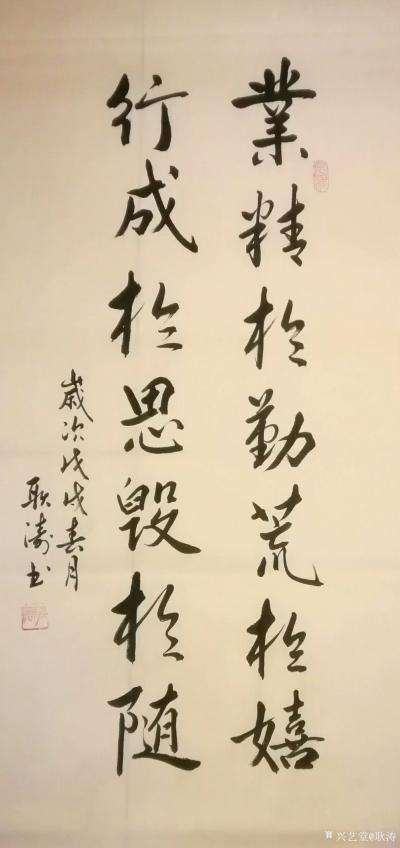 業精於勤荒於嬉
行成於思毁於随
歲次戊戌春月
耿涛书
兴艺堂@耿涛